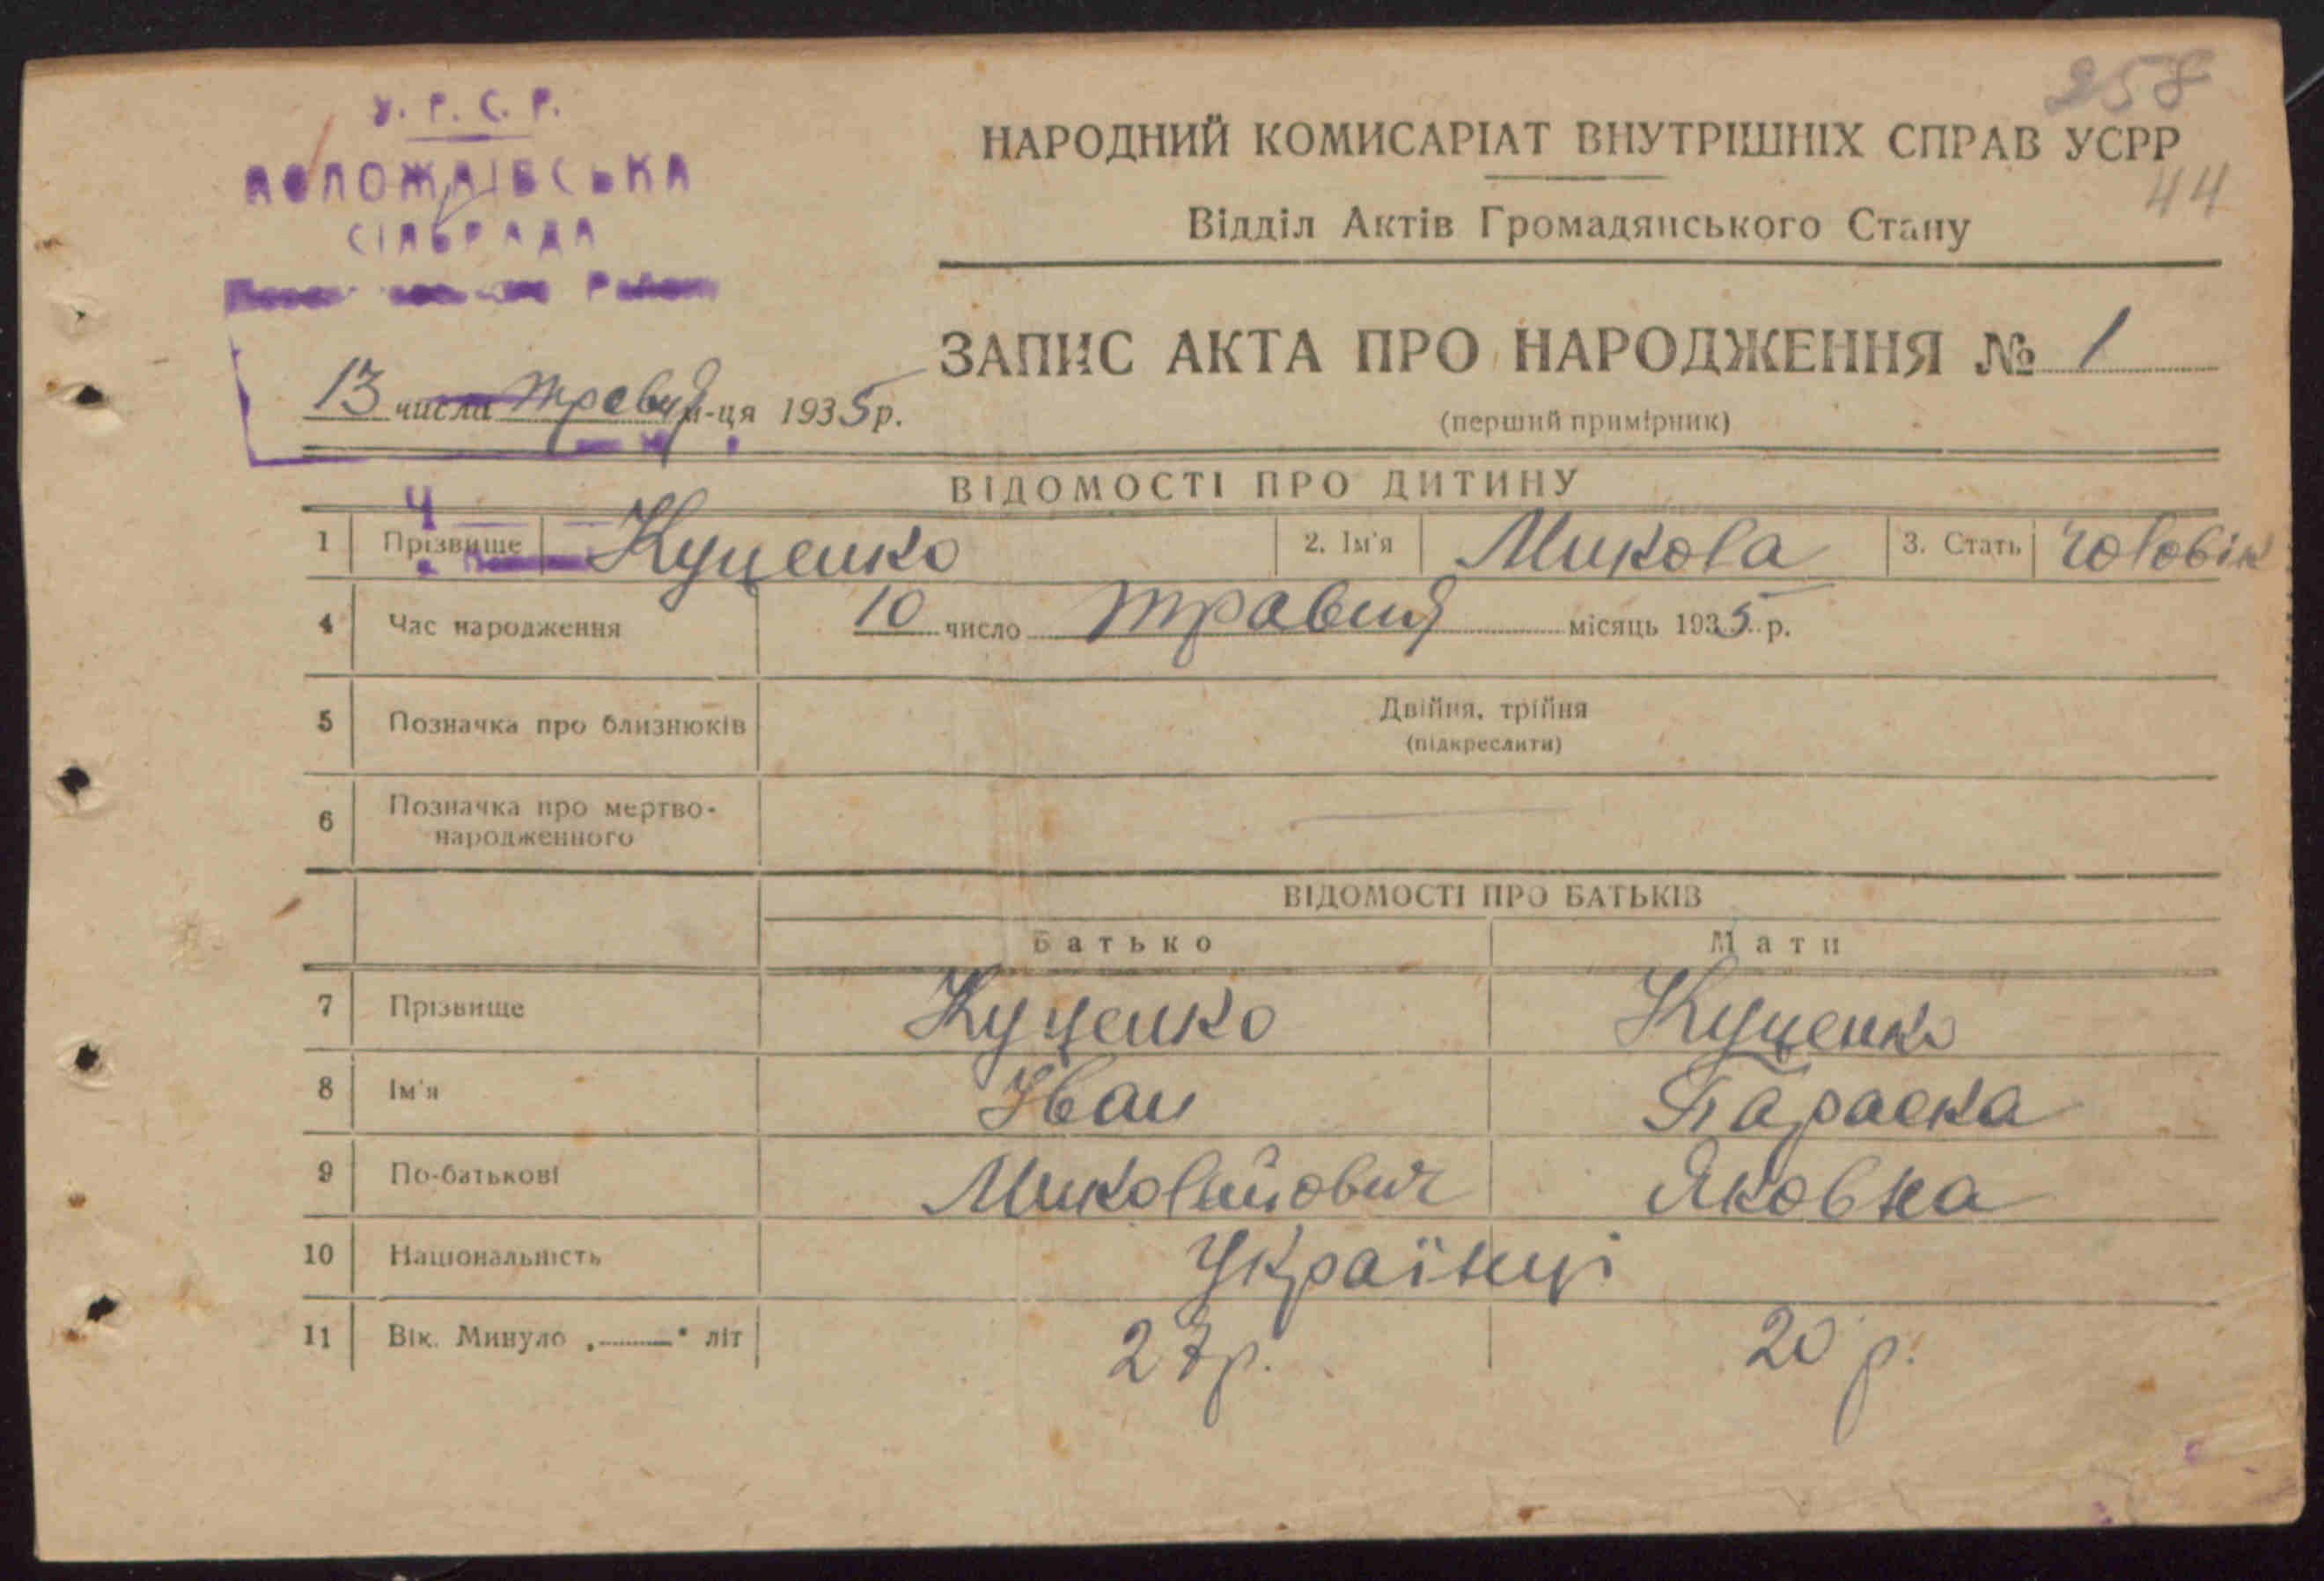 258
У. Р. С. Р.
СІЛЬРАДА
НАРОДНИЙ КОМИСАРІАТ ВНУТРІШНІХ СПРАВ УСРР
44
Відділ Актів Громадянського Стану
ЗАПИС АКТА ПРО НАРОДЖЕННЯ № 1
(перший примірник)
13 числа травня м-ця 1935 р.
ВІДОМОСТІ ПРО ДИТИНУ
1 Прізвище Куценко 2. Ім'я Микола 3. Стать чоловік
4 Час народження 10 число травня місяць 1935 р.
5 Позначка про близнюків Двійня, трійня
(підкреслити)
6 Позначка про мертво-
народженного
ВІДОМОСТІ ПРО БАТЬКІВ
Батько Мати
7 Прізвище Куценко Куценко
8 Ім'я Іван Параска
9 По-батькові Миколайович Яковна
10 Національність Українці
11 Вік. Минуло „ " літ 27 р. 20 р.